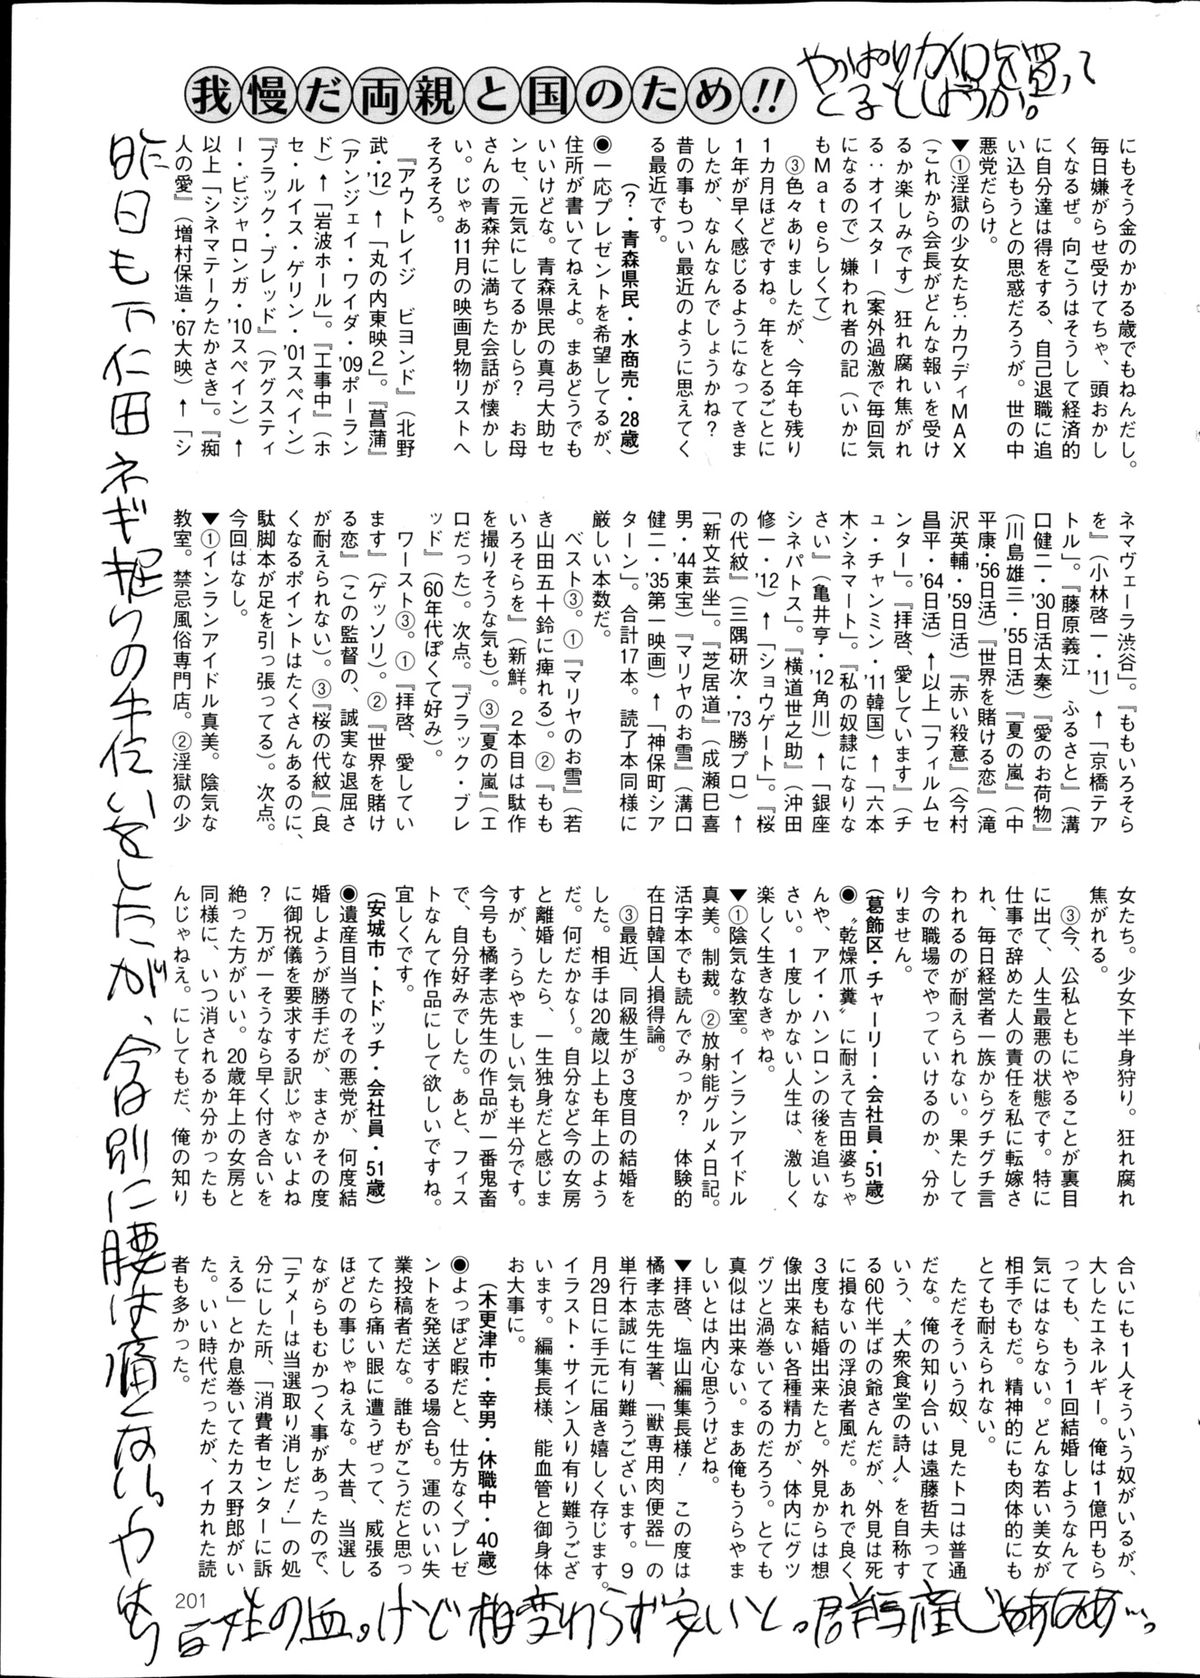 我慢だ両親と国のため!!
やっぱりカイロを買って
とことしようか。
にもそう金のかかる歳でもねんだし。
毎日嫌がらせ受けてちゃ、頭おかし
くなるぜ。向こうはそうして経済的
に自分達は得をする、自己退職に追
い込もうとの思惑だろうが。世の中
悪党だらけ。
▼①淫獄の少女たち:カワディMAX
(これから会長がどんな報いを受け
るか楽しみです)狂れ腐れ焦がれ
る:オイスター(案外過激で毎回気
になるので)嫌われ者の記(いかに
もMateらしくて)
③色々ありましたが、今年も残り
1カ月ほどですね。年をとるごとに
1年が早く感じるようになってきま
したが、なんなんでしょうかね?
昔の事もつい最近のように思えてく
る最近です。
(?・青森県民・水商売・28歳)
◉一応プレゼントを希望してるが、
住所が書いてねえよ。まあどうでも
いいけどな。青森県民の真弓大助セ
ンセ、元気にしてるかしら? お母
さんの青森弁に満ちた会話が懐かし
い。じゃあ11月の映画見物リストへ
そろそろ。
『アウトレイジ ビヨンド』(北野
武・'12)↑「丸の内東映2」。『菖蒲』
(アンジェイ・ワイダ・'09ポーラン
ド)↑「岩波ホール」。『工事中』(ホ
セ・ルイス・ゲリン・'01スペイン)
『ブラック・ブレッド』(アグスティ
ー・ビジャロンガ・'10スペイン)↑
以上「シネマテークたかさき」。『痴
人の愛』(増村保造・'67大映)↑「シ
ネマヴェーラ渋谷」。『ももいろそら
を』(小林啓一・'11)↑「京橋テア
トル」。『藤原義江 ふるさと』(溝
口健二・'30日活太秦)『愛のお荷物』
(川島雄三・'55日活)『夏の嵐』(中
平康・'56日活)『世界を賭ける恋』(滝
沢英輔・'59日活)『赤い殺意』(今村
昌平・'64日活)↑以上「フィルムセ
ンター」。『拝啓、愛しています』(チ
ュ・チャンミン・'11韓国)↑「六本
木シネマート」。『私の奴隷になりな
さい』(亀井亨・'12角川)↑「銀座
シネパトス」。『横道世之助』(沖田
修一・'12)↑「ショウゲート」。『桜
の代紋』(三隅研次・'73勝プロ)↑
「新文芸坐」。『芝居道』(成瀬巳喜
男・'44東宝)『マリヤのお雪』(溝口
健二・'35第一映画)↑「神保町シア
ターン」。合計17本。読了本同様に
厳しい本数だ。
ベスト③。①『マリヤのお雪』(若
き山田五十鈴に痺れる)。②『もも
いろそらを』(新鮮。2本目は駄作
を撮りそうな気も)。③『夏の嵐』(エ
ロだった)。次点。『ブラック・ブレ
ッド』(60年代ぽくて好み)。
ワースト③。①『拝啓、愛してい
ます』(ゲッソリ)。②『世界を賭け
る恋』(この監督の、誠実な退屈さ
が耐えられない)。③『桜の代紋』(良
くなるポイントはたくさんあるのに、
駄脚本が足を引っ張ってる)。次点。
今回はなし。
▼①インランアイドル真美。陰気な
教室。禁忌風俗専門店。②淫獄の少
女たち。少女下半身狩り。狂れ腐れ
焦がれる。
③今、公私ともにやることが裏目
に出て、人生最悪の状態です。特に
仕事で辞めた人の責任を私に転嫁さ
れ、毎日経営者一族からグチグチ言
われるのが耐えられない。果たして
今の職場でやっていけるのか、分か
りません。
(葛飾区・チャーリー・会社員・51歳)
◉〝乾燥爪糞〟に耐えて吉田婆ちゃ
んや、アイ・ハンロンの後を追いな
さい。1度しかない人生は、激しく
楽しく生きなきゃね。
▼①陰気な教室。インランアイドル
真美。制裁。②放射能グルメ日記。
活字本でも読んでみっか? 体験的
在日韓国人損得論。
③最近、同級生が3度目の結婚を
した。相手は20歳以上も年上のよう
だ。何だかな～。自分など今の女房
と離婚したら、一生独身だと感じま
すが、うらやましい気も半分です。
今号も橘孝志先生の作品が一番鬼畜
で、自分好みでした。あと、フィス
トなんて作品にして欲しいですね。
宜しくです。
(安城市・トドッチ・会社員・51歳)
◉遺産目当てのその悪党が、何度結
婚しようが勝手だが、まさかその度
に御祝儀を要求する訳じゃないよね
? 万が一そうなら早く付き合いを
絶った方がいい。20歳年上の女房と
同様に、いつ消されるか分かったも
んじゃねえ。にしてもだ、俺の知り
合いにも1人そういう奴がいるが、
大したエネルギー。俺は1億円もら
っても、もう1回結婚しようなんて
気にはならない。どんな若い美女が
相手でもだ。精神的にも肉体的にも
とても耐えられない。
ただそういう奴、見たトコは普通
だな。俺の知り合いは遠藤哲夫って
いう、〝大衆食堂の詩人〟を自称す
る60代半ばの爺さんだが、外見は死
に損ないの浮浪者風だ。あれで良く
3度も結婚出来たと。外見からは想
像出来ない各種精力が、体内にグツ
グツと渦巻いてるのだろう。とても
真似は出来ない。まあ俺もうらやま
しいとは内心思うけどね。
▼拝啓、塩山編集長様! この度は
橘孝志先生著、「獣専用肉便器」の
単行本誠に有り難うございます。9
月29日に手元に届き嬉しく存じます。
イラスト・サイン入り有り難うござ
います。編集長様、能血管と御身体
お大事に。
(木更津市・幸男・休職中・40歳)
◉よっぽど暇だと、仕方なくプレゼ
ントを発送する場合も。運のいい失
業投稿者だな。誰もがこうだと思っ
てたら痛い眼に遭うぜって、威張る
ほどの事じゃねえな。大昔、当選し
ながらもむかつく事があったので、
「テメーは当選取り消しだ!」の処
分にした所、「消費者センターに訴
える」とか息巻いてたカス野郎がい
た。いい時代だったが、イカれた読
者も多かった。
昨日も下仁田ネギ掘りの手伝いをしたが、今は別に腰は痛くない。やはり
百姓の血。けど相変わらず安いと。群馬産じゃあなあ…。
201